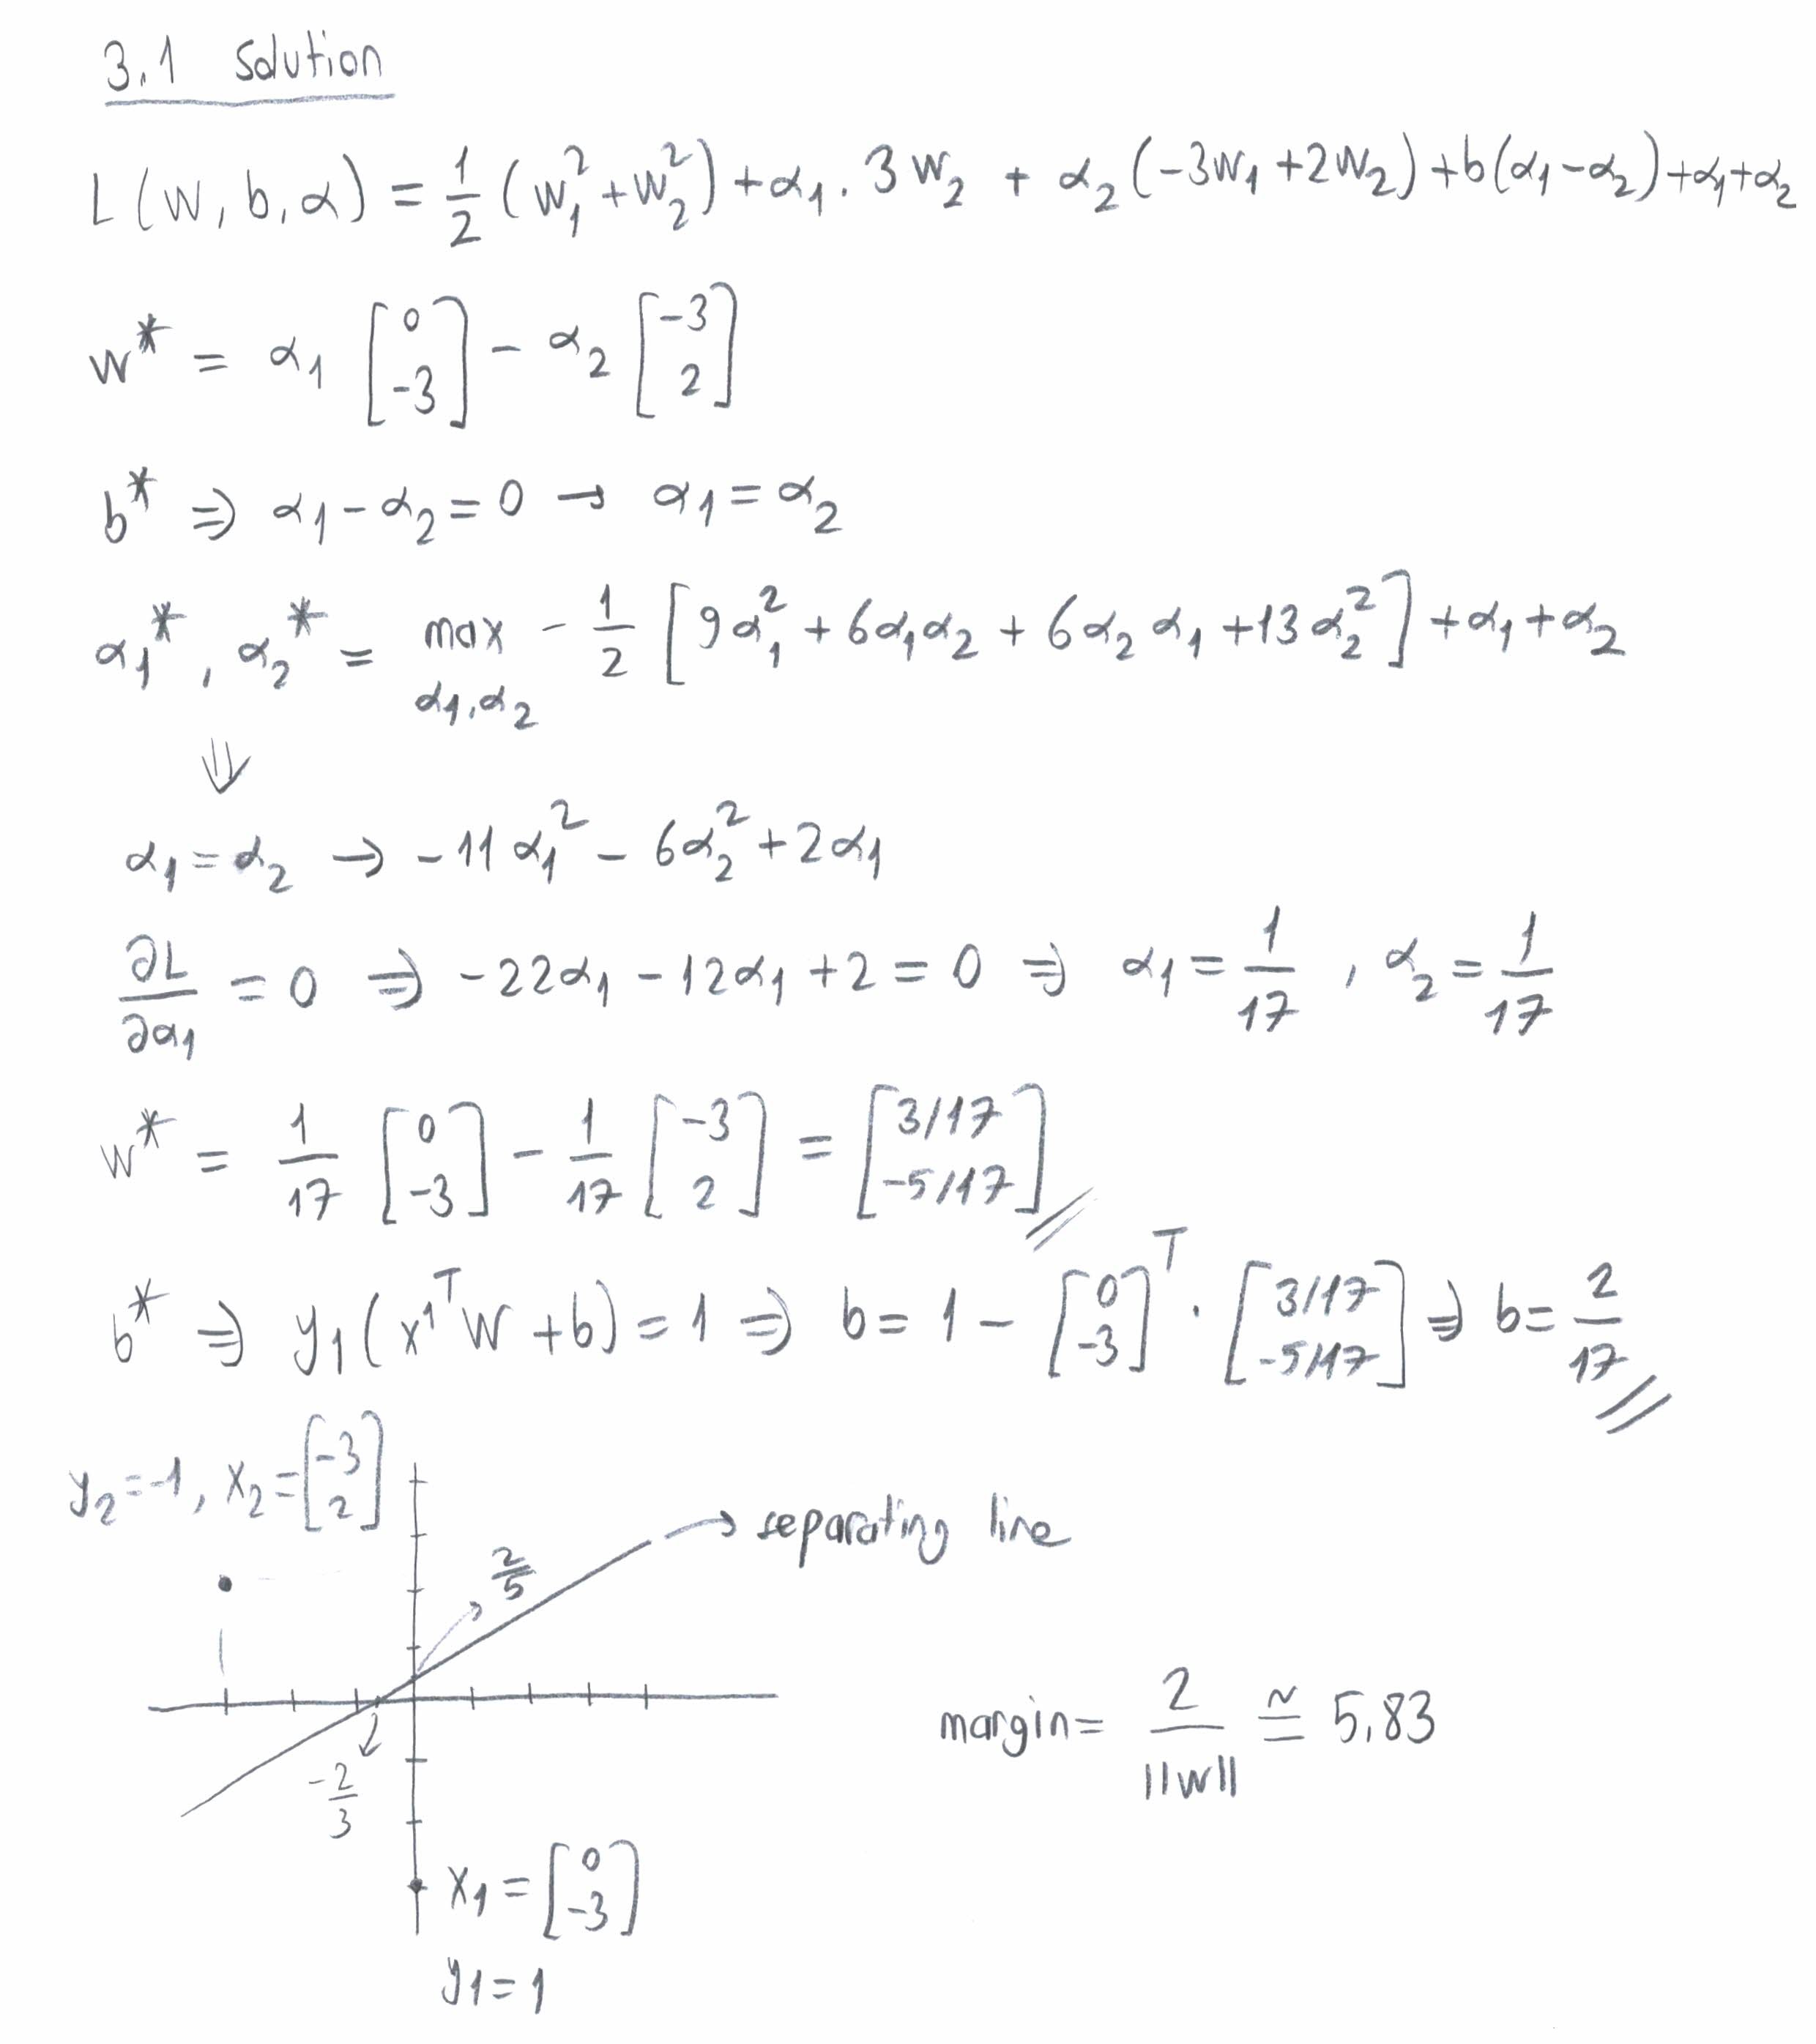 3.1 Solution
L(w, b, α) = 1/2 (w₁² + w₂²) + α₁ . 3w₂ + α₂(-3w₁ + 2w₂) + b(α₁ - α₂) + α₁ + α₂
w* = α₁ [0 -3] - α₂ [-3 2]
b* ⇒ α₁ - α₂ = 0 → α₁ = α₂
α₁*, α₂* = max - 1/2 [9α₁² + 6α₁α₂ + 6α₂α₁ + 13α₂²] + α₁ + α₂
α₁, α₂
⇓
α₁ = α₂ → -11α₁² - 6α₂² + 2α₁
∂L/∂α₁ = 0 ⇒ -22α₁ - 12α₁ + 2 = 0 ⇒ α₁ = 1/17 , α₂ = 1/17
w* = 1/17 [0 -3] - 1/17 [-3 2] = [3/17 -5/17]
b* ⇒ y₁(x¹ᵀw + b) = 1 ⇒ b = 1 - [0 -3]ᵀ . [3/17 -5/17] ⇒ b = 2/17
y₂ = -1, x₂ = [-3 2]
→ separating line
2/5
-2/3
margin = 2/||w|| ≅ 5,83
x₁ = [0 -3]
y₁ = 1